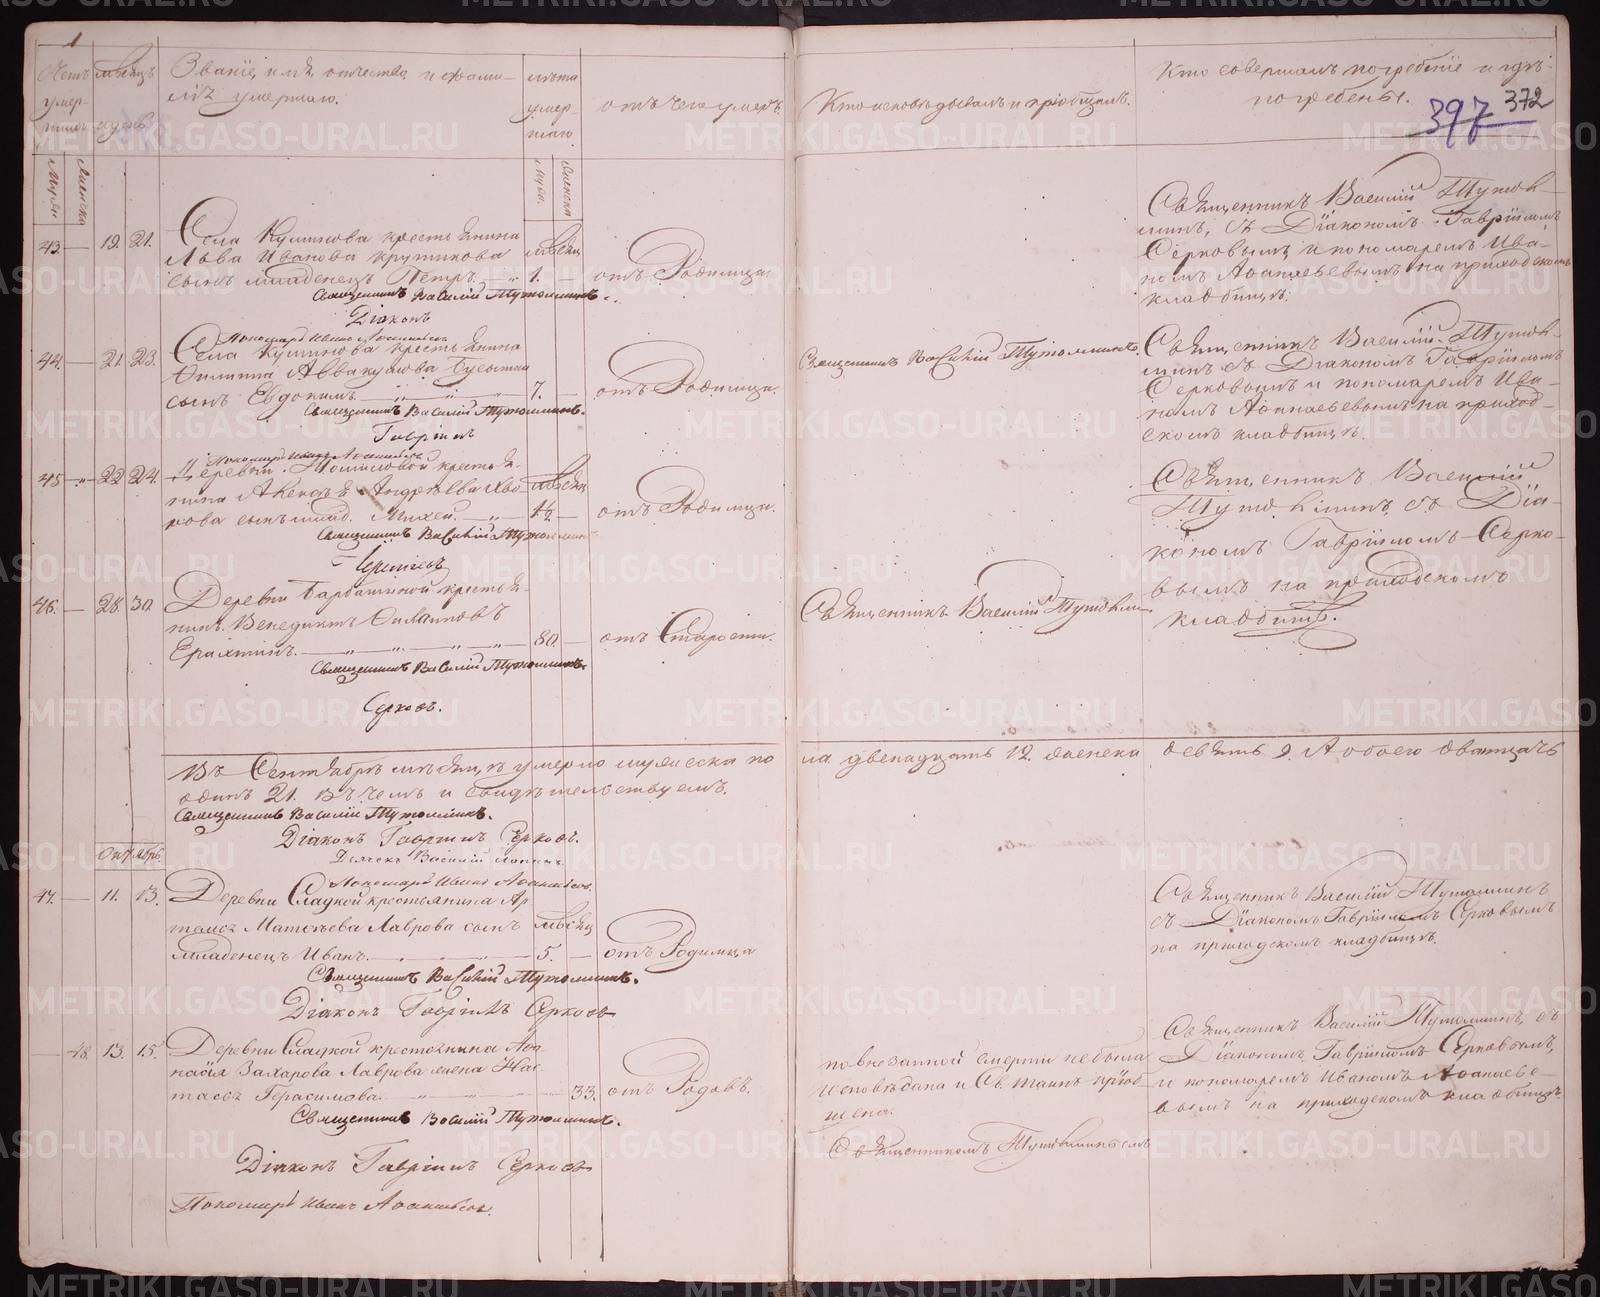 Счетъ умер-
шихъ
мѣсяцъ
и день
Званіе, имя, отчество и фами-
лія умершаго.
лѣта
умер-
шаго
отъ чего умеръ.
Кто исповѣдывалъ и пріобщалъ.
Кто совершалъ погребеніе и гдѣ
погребены.
397 372
Мужеска
Женска
Мужес.
Женска
43 — 19. 21.
Села крестьянина
Льва Иванова Крутикова
сынъ младенецъ Петръ
мѣсяц
1.
отъ Родимца.
Священникъ Василій Тутолминъ, съ Діакономъ Гавріиломъ
Серковымъ и пономаремъ Ива-
номъ Аѳанасьевымъ на приходскомъ
кладбищѣ.
Священникъ Василій Тутолминъ.
Діаконъ
Пономарь Иванъ Аѳанасьевъ
44. — 21. 23.
Села крестьянина
Филиппа Аввакумова
сынъ Евдокимъ
7.
отъ Родимца.
Священникъ Василій Тутолминъ.
Священникъ Василій Тутол-
минъ съ Діакономъ Гавріиломъ
Серковымъ и пономаремъ Ива-
номъ Аѳанасьевымъ на приход-
скомъ кладбищѣ.
Священникъ Василій Тутолминъ.
Гавріилъ
Пономарь Иванъ Аѳанасьевъ
45 — 22 24.
Деревни крестья-
нина Алексѣя Андреева
сынъ млад. Михей.
мѣсяц
1½
отъ Родимца.
Священникъ Василій
Тутолминъ съ Діа-
кономъ Гавріиломъ Серко-
вымъ на приходскомъ
кладбищѣ.
Священникъ Василій Тутолминъ
46. — 28. 30.
Деревни крестья-
нинъ Венедиктъ Филипповъ
80
отъ Старости.
Священникъ Василій Тутолминъ
Священникъ Василій Тутолминъ.
Серковъ.
Въ Сентябрѣ мѣсяцѣ умерло мужеска по-
ла двенадцать 12. женска девять 9. А обоего дватцать
одинъ 21. Въ чемъ и свидѣтельствуемъ.
Священникъ Василій Тутолминъ.
Діаконъ Гавріилъ Серковъ.
Дьячекъ Василій
Пономарь Иванъ Аѳанасьевъ.
Октябрь
47. — 11. 13.
Деревни Сладкой крестьянина Ар-
Матвѣева Лаврова сынъ
младенецъ Иванъ.
мѣсяц
5.
отъ Родимца
Священникъ Василій Тутолминъ
съ Діакономъ Гавріиломъ Серковымъ
на приходскомъ кладбищѣ.
Священникъ Василій Тутолминъ.
Діаконъ Гавріилъ Серковъ
48. 13. 15.
Деревни Сладкой крестьянина Аѳа-
насія Захарова Лаврова жена Нас-
тасья Герасимова.
33.
отъ Родовъ.
по внезапной смерти не была
исповѣдана и Св. Таинъ пріоб-
щена.
Священникомъ Тутолминымъ
Священникъ Василій Тутолминъ, съ
Діакономъ Гавріиломъ Серковымъ,
и пономаремъ Иваномъ Аѳанасье-
вымъ на приходскомъ кладбищѣ.
Священникъ Василій Тутолминъ.
Діаконъ Гавріилъ Серковъ
Пономарь Иванъ Аѳанасьевъ.
METRIKI.GASO-URAL.RU